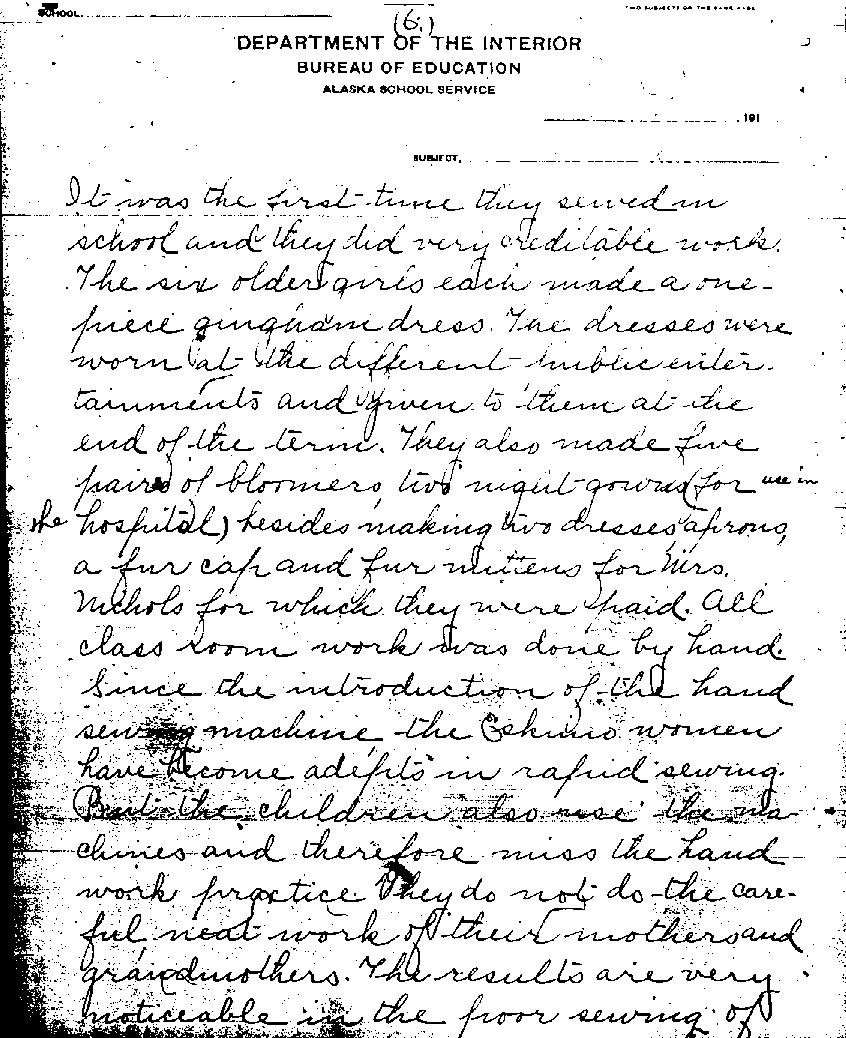 SCHOOL.
TWO SUBJECTS ON THE SAME PAGE
(6.)
DEPARTMENT OF THE INTERIOR
BUREAU OF EDUCATION
ALASKA SCHOOL SERVICE
191
SUBJECT,
It was the first time they sewed in
school and they did very creditable work.
The six older girls each made a one-
piece gingham dress. The dresses were
worn at the different public enter-
tainments and given to them at the
end of the term. They also made five
pairs of bloomers, two night-gowns (for use in
the hospital) besides making two dresses, aprons,
a fur cap and fur mittens for Mrs.
Nichols for which they were paid. All
class room work was done by hand.
Since the introduction of the hand
sewing machine, the Eskimo women
have become adepts in rapid sewing.
But the children also use the ma-
chines and therefore miss the hand
work practice. They do not do the care-
ful neat work of their mothers and
grandmothers. The results are very
noticeable in the poor sewing of